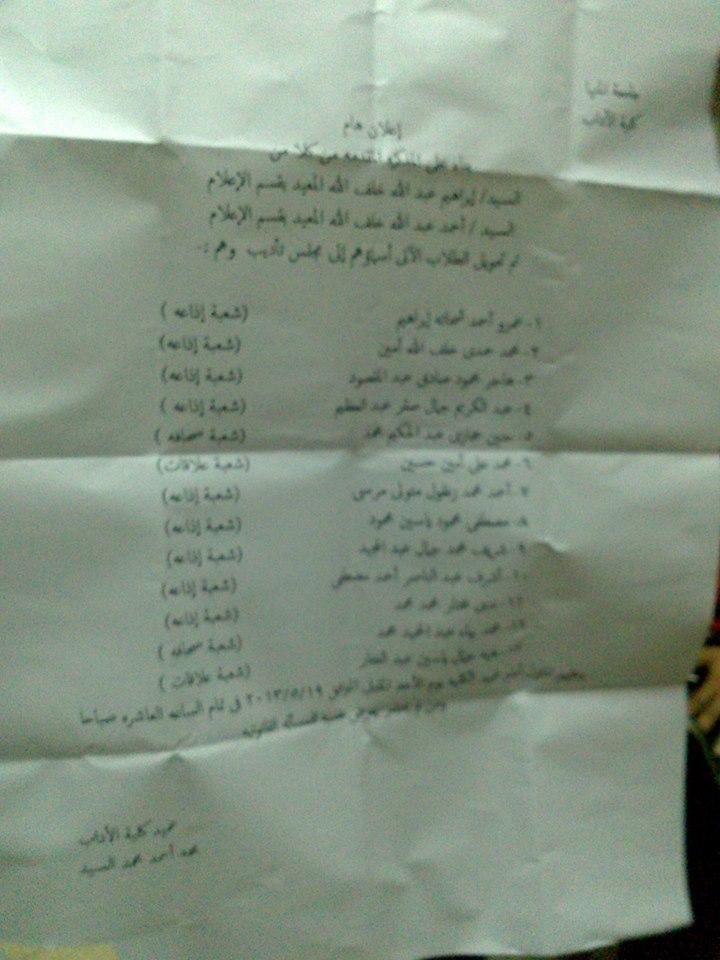 جامعة المنيا
كلية الآداب
إعلان هام
بناء على المذكرة المقدمه من كلا من
السيد/ إبراهيم عبد الله خلف الله المعيد بقسم الإعلام
السيد / أحمد عبد الله خلف الله المعيد بقسم الإعلام
تم تحويل الطلاب الآتى أسماؤهم إلى مجلس تأديب وهم :-
١- عمرو أحمد إبراهيم (شعبة إذاعه )
٢- محمد حمدى خلف الله أمين (شعبة إذاعه)
٣- هاجر محمود صادق عبد المقصود (شعبة إذاعه)
٤- عبد الكريم جمال صقر عبد العظيم (شعبة إذاعه )
٥- حجازى عبد الحكيم محمد (شعبة صحافه )
٦- محمد على أمين حسين (شعبة علاقات)
٧- أحمد محمد زغلول متولى مرسى (شعبة إذاعه)
٨- مصطفى محمود ياسين محمود (شعبة إذاعه)
٩- شريف محمد جمال عبد المجيد (شعبة إذاعه)
١٠- أشرف عبد الناصر أحمد مصطفى (شعبة إذاعه)
١١- مختار محمد محمد (شعبة إذاعه)
١٢- محمد بهاء عبد الحميد محمد (شعبة صحافه )
١٣- جمال ياسين عبد الغفار (شعبة علاقات )
عميد الكليه يوم الأحد المقبل الموافق ٢٠١٣/٥/١٩ فى تمام الساعه العاشره صباحا
ومن لم يحضر يعرض نفسه للمسأله القانونيه
عميد كلية الآداب
محمد أحمد محمد السيد